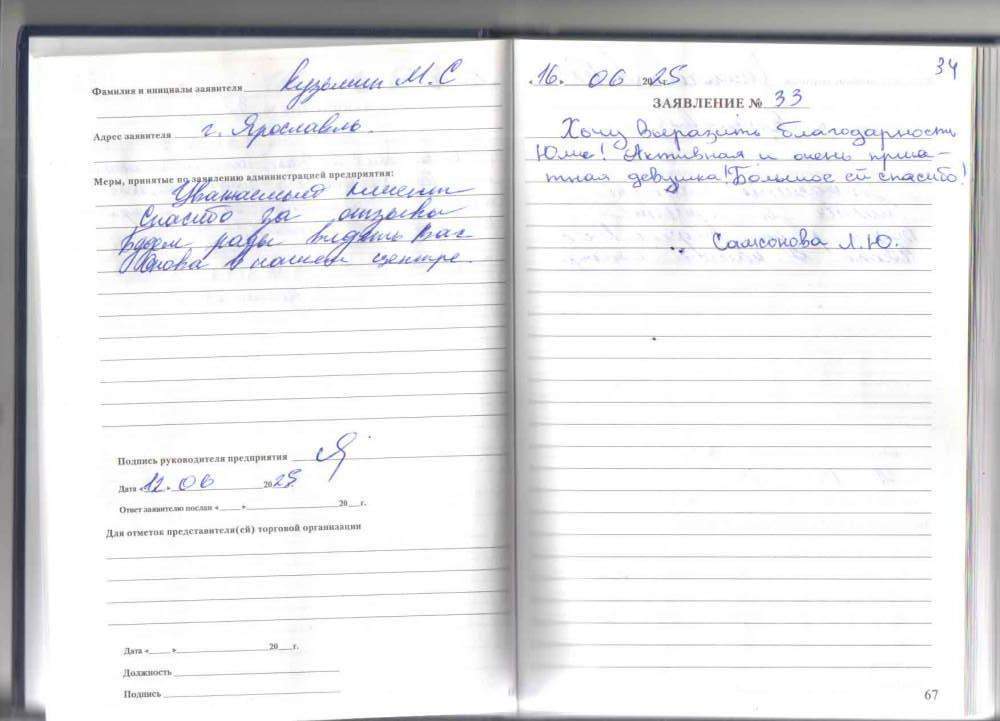 Фамилия и инициалы заявителя Кузьмин М. С
Адрес заявителя г. Ярославль.
Меры, принятые по заявлению администрацией предприятия:
Спасибо за отзыв
Будем рады видеть Вас
снова в нашем центре.
Подпись руководителя предприятия
Дата «12» 06 2025
Ответ заявителю послан «___» ___ 20__г.
Для отметок представителя(ей) торговой организации
Дата «___» ___ 20__г.
Должность
Подпись
34
«16» 06 2025
ЗАЯВЛЕНИЕ № 33
Хочу Выразить благодарность
Юлие! Активная и очень прия-
тная девушка! Большое ей спасибо!
Самсонова Л.Ю.
67